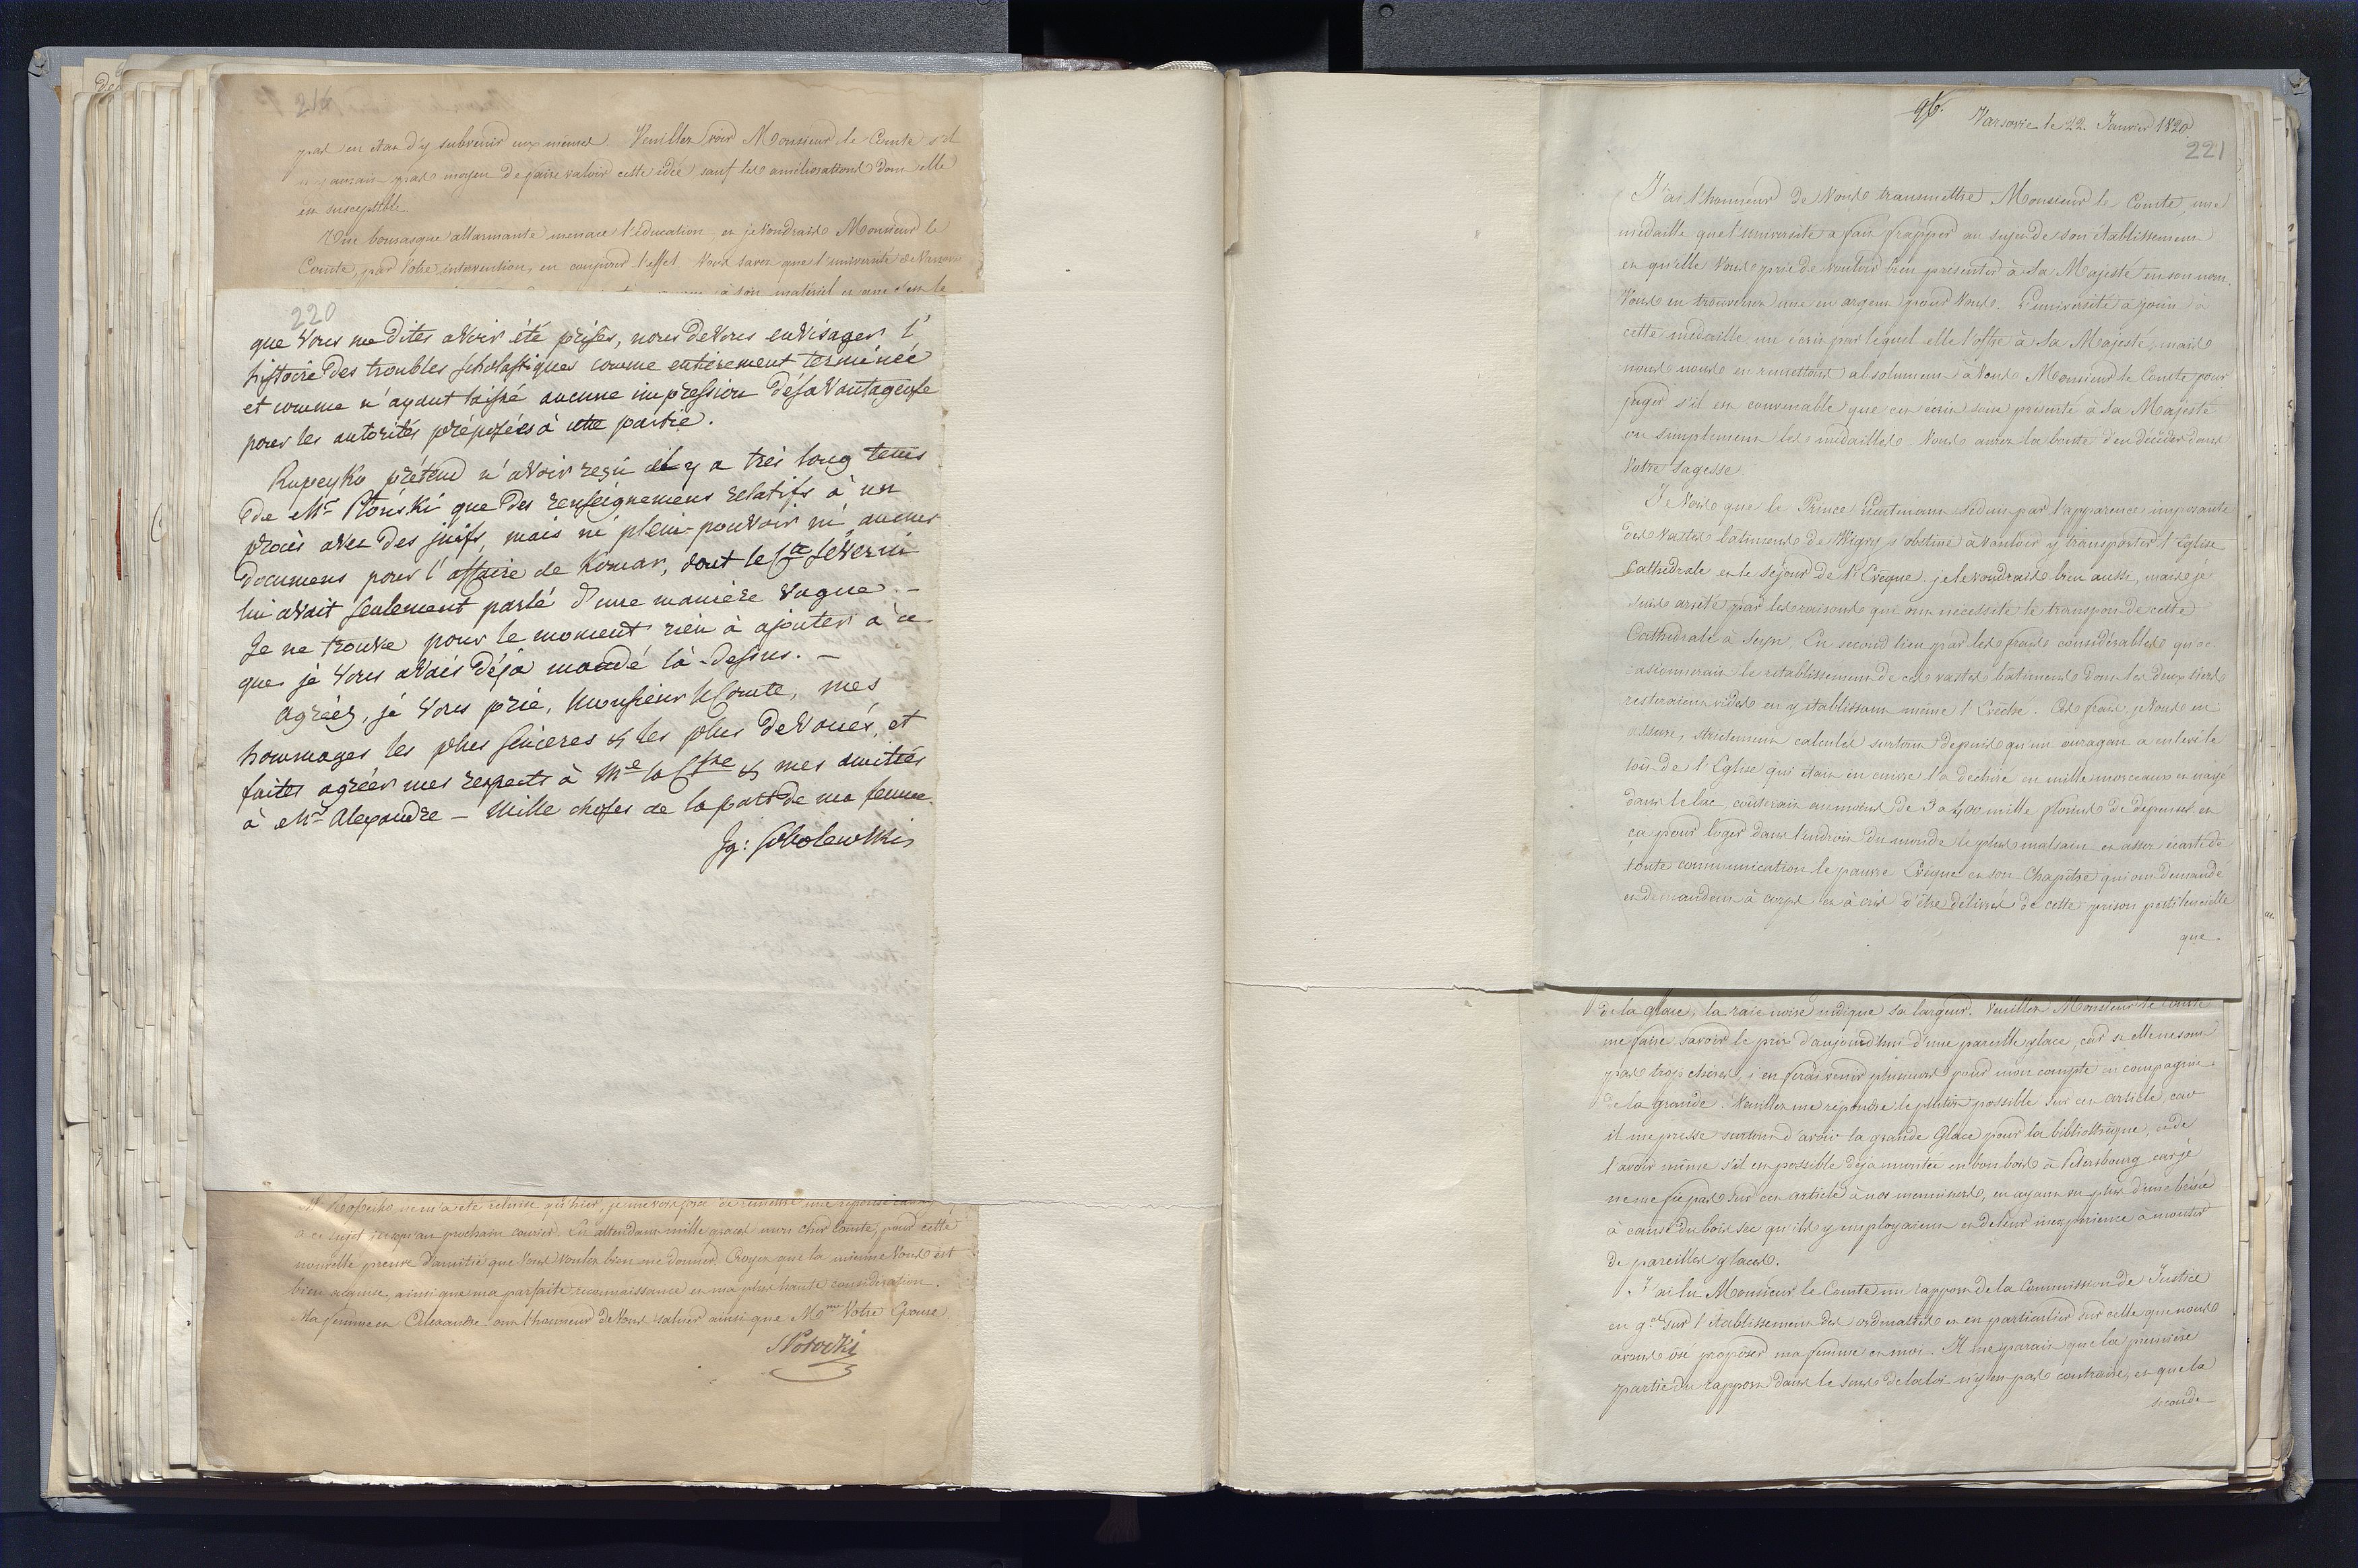 216
pas en état d'y subvenir eux mêmes. Veuillez voir Monsieur le Comte s'il
n'y aurait pas moyen de faire valoir cette idée sauf les améliorations dont elle
est susceptible.
Une bourasque allarmante menace l'éducation et je voudrais Monsieur le
Comte, par Votre intervention, en conjurer l'effet. Vous savez que l'université de Varsovie
à son matériel et
220
que Vous me dites avoir été prises, nous devons envisager l'
histoire des troubles scholastiques comme entièrement terminée
et comme n'ayant laissé aucune impression désavantageuse
pour les autorités préposées à cette partie.
Rupeyko prétend n'avoir reçu il y a très long tems
de Mr que des renseignemens relatifs à un
procès avec des juifs, mais ni plein-pouvoir ni aucuns
documens pour l'affaire de Komar, dont le Cte Severin
lui avait seulement parlé d'une manière vague. —
Je ne trouve pour le moment rien à ajouter à ce
que je Vous avais déjà mandé là-dessus. —
Agréez, je Vous prie, Monsieur le Comte, mes
hommages les plus sinceres & les plus devoués, et
faites agréer mes respects à Me la Ctsse & mes amitiés
à Mr Alexandre — Mille choses de la part de ma femme.
Ig: Sobolewski
ne m'a été remise qu'hier, je me vois forcé de remettre une réponse
à ce sujet jusqu'au prochain courier. En attendant mille graces mon cher Comte, pour cette
nouvelle preuve d'amitié que Vous voulez bien me donner. Croyez que la mienne Vous est
bien acquise, ainsi que ma parfaite reconnaissance et ma plus haute considération.
Ma femme et Alexandre ont l'honneur de Vous saluer ainsi que Mme Votre Epouse.
SPotocki
96.
Varsovie le 22 Janvier 1820.
221
J'ai l'honneur de Vous transmettre Monsieur le Comte une
médaille que l'université a fait frapper au sujet de son établissement
et qu'elle Vous prie de vouloir bien présenter à Sa Majesté en son nom.
Vous en trouverez une en argent pour Vous. L'université a joint à
cette médaille un écrit par lequel elle l'offre à Sa Majesté, mais
nous nous en remettons absolument à Vous Monsieur le Comte pour
juger s'il est convenable que cet écrit soit présenté à Sa Majesté
ou simplement les médailles. Vous aurez la bonté d'en décider dans
Votre sagesse.
Je Vois que le Prince Lieutenant séduit par l'apparence imposante
des vastes bâtimens de Wigry s'obstine à vouloir y transporter l'Eglise
Cathedrale et le séjour de l'Evêque. je le voudrais bien aussi, mais je
suis arrêté par les raisons que ont nécessité le transport de cette
Cathédrale à Seyn, En second lieu par les frais considérables qu'oc-
casionnerait le rétablissement de ces vastes bâtimens dont les deux tiers
resteraient vides en y établissant même l'Evêché. Ces frais, je Vous en
assure, strictement calculés surtout depuis qu'un ouragan a enlevé le
toit de l'Eglise qui était en cuivre l'a déchiré en mille morceaux et noyé
dans le lac, couterait au moins de 3 a 400 mille florins de depenses et
ça pour loger dans l'endroit du monde le plus malsain et assez écarté de
toute communication le pauvre Evêque et son Chapitre qui ont demandé
et demandent à corps et à cris d'être délivrés de cette prison pestilencielle
que
de la glace, la raie noire indique sa largeur. Veuillez Monsieur le Comte
me faire savoir le prix d'aujourd'hui d'une pareille glace, car si elle ne sont
pas trop chères, j'en ferai venir plusieurs pour mon compte en compagnie
de la grande. Veuillez me répondre le plutôt possible sur cet article, car
il me presse surtout d'avoir la grande Glace pour la bibliothèque, et de
l'avoir même s'il est possible déja montée en bon bois à Petersbourg car je
ne me fie pas sur cet article à nos menuisiers, en ayant vu plus d'une brisée
à cause du bois sec qu'ils y employaient et de leur inexperience à monter
de pareilles glaces.
J'ai lu Monsieur le Comte un rapport de la Commission de Justice
en gal sur l'établissement des ordinaties et en particulier sur celle que nous
avons osé proposer ma femme et moi. Il me parait que la première
partie du rapport dans le sens de la loi n'y est pas contraire, et que la
seconde